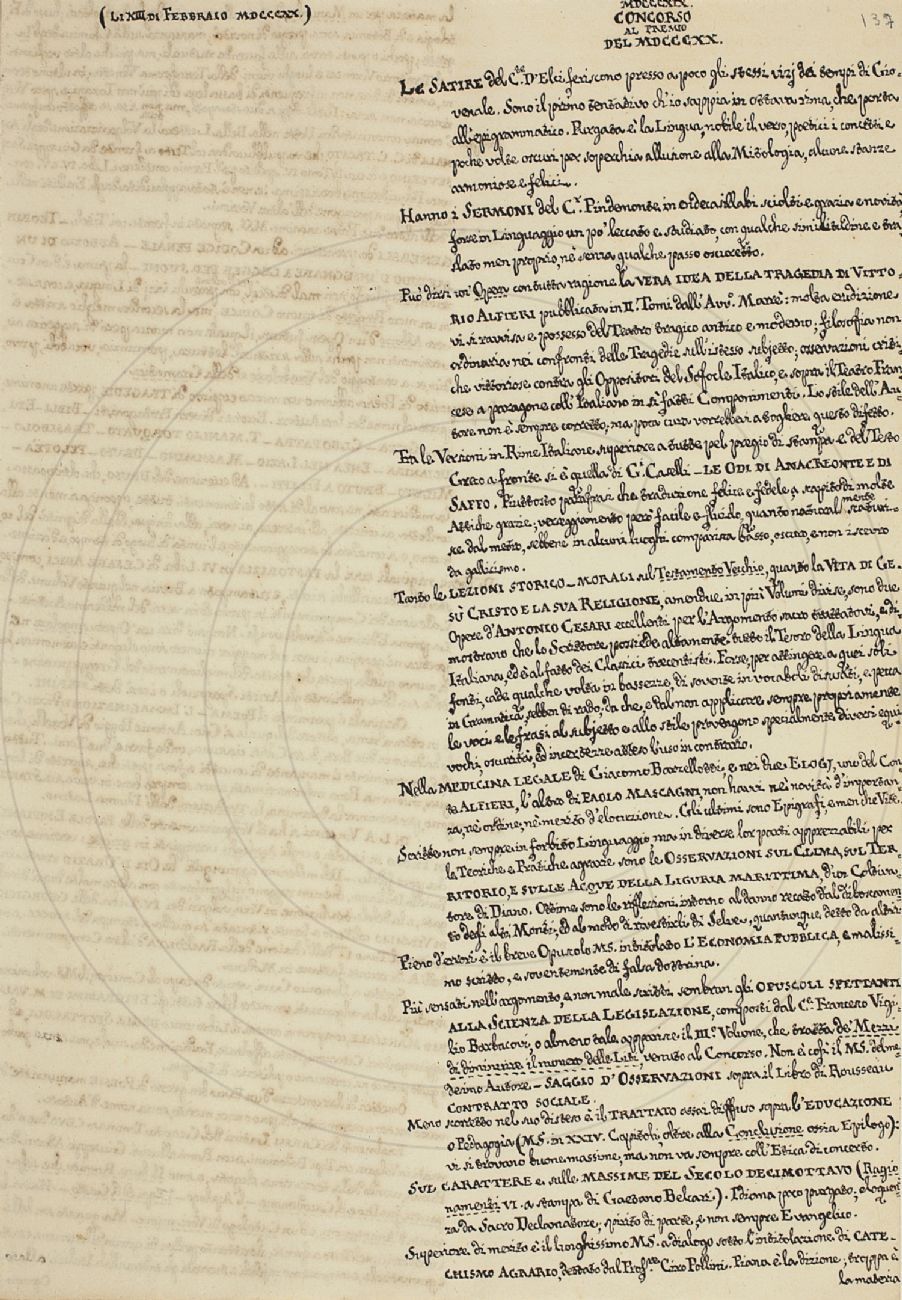 (LI XIII DI FEBBRAIO MDCCCXX.)
MDCCCXIX.
CONCORSO
AL PREMIO
DEL MDCCCXX.
137
LE SATIRE del C.te D'Elci feriscono presso a poco gli stessi vizj dei tempi di Gio-
venale. Sono il primo tentativo ch'io sappia in ottava rima, che porta
all'epigrammatico. Purgata è la Lingua, nobile il verso, poetici i concetti e
poche volte oscuri per soperchia allusione alla Mitologia, alcune stanze
armoniose e felici.
Hanno i SERMONI del C.r Pindemonte in endecasillabi sciolti e grazia e novità,
forse in Linguaggio un po' leccato e studiato, con qualche similitudine e tra
slato men proprio, nè senza qualche passo oscuretto.
Può dirsi un' Opera con tutta ragione la VERA IDEA DELLA TRAGEDIA DI VITTO-
RIO ALFIERI pubblicata in II. Tomi dall'Avv.o Marrè: molta erudizione
vi si ravvisa e possesso del Teatro tragico antico e moderno; filosofia non
ordinaria nei confronti delle Tragedie sull'istesso subjetto; osservazioni criti-
che vittoriose contra gli Oppositori del Sofocle Italico, e sopra il Teatro Fran
cese a paragone coll'Italiano in sì fatti Componimenti. Lo stile dell'Au-
tore non è sempre corretto, ma poca cura vorrebbevi a togliere questo difetto.
Tra le Versioni in Rime Italiane, superiore a tutte pel pregio di stampa e del Testo
Greco a fronte si è quella di G. Caselli – LE ODI DI ANACREONTE E DI
SAFFO. Piuttosto parafrasi che traduzione felice e fedele, à rapito di molte
Attiche grazie; verseggiamento però facile e fluido, quanto natural mente scaturi-
sce dal metro, sebbene in alcuni luoghi comparisca basso, oscuro, e non iscevro
da gallicismo.
Tanto le LEZIONI STORICO-MORALI sul Testamento Vecchio, quanto la VITA DI GE-
SÙ CRISTO E LA SUA RELIGIONE, amendue in più Volumi divise, sono due
Opere d'ANTONIO CESARI eccellenti per l'Argomento sacro trattatovi, e di
mostrano che lo Scrittore possiede altamente tutto il Tesoro della Lingua
Italiana, ed è al fatto dei Classici trecentisti. Forse, per attingere a quei soli
fonti, cade qualche volta in bassezze, di sovente in vocaboli disusati, e pecca
in Grammatica sebben di rado, da che, e dal non applicare sempre propriamente
le voci e le frasi al subjetto e allo stile provengono specialmente diversi equi
vochi, oscurità, ed incertezze atteso l'uso in contrario.
Nella MEDICINA LEGALE di Giacomo Barzellotti, e nei due ELOGJ, uno del Con
te ALFIERI, l'altro di PAOLO MASCAGNI non havvi nè novità d'importan-
za, nè ordine, nè merito d'elocuzione. Gli ultimi sono Epigrafi, e men che Vite.
Scritte non sempre in forbito Linguaggio, ma in diverse lor parti apprezzabili per
le Teoriche e Pratiche agrarie sono le OSSERVAZIONI SUL CLIMA, SUL TER-
RITORIO, E SULLE ACQUE DELLA LIGURIA MARITTIMA, d'un Coltiva-
tore di Diano. Ottime sono le riflessioni intorno al danno recato dal diboscamen-
to degli alti Monti, ed al modo di rivestirli di Selve, quantunque detto da altri.
Pieno d'errori è il breve Opuscolo MS. intitolato L'ECONOMIA PUBBLICA, e malissi-
mo scritto, e soventemente di falsa dottrina.
Più sensati nell'argomento, e non male scritti sembran gli OPUSCOLI SPETTANTI
ALLA SCIENZA DELLA LEGISLAZIONE, composti dal C.e Francesco Vigi-
lio Barbacovi, o almeno tale apparisce il III.o Volume, che tratta de' Mezzi
di diminuire il numero delle Liti, venuto al Concorso. Non è così il MS. del me-
desimo Autore – SAGGIO D'OSSERVAZIONI sopra il Libro di Rousseau
CONTRATTO SOCIALE.
Meno scorretto nel suo disteso è il TRATTATO assai diffuso sopra l'EDUCAZIONE
o Pedagogia (MS. in XXIV. Capitoli, oltre alla Conclusione ossia Epilogo):
vi si trovano buone massime, ma non va sempre coll'Etica di concerto.
SUL CARATTERE e sulle MASSIME DEL SECOLO DECIMOTTAVO (Ragio
namenti VI. a stampa di Gaetano Belcari.). Idioma poco purgato, eloquen
za da Sacro Declamatore, spirito di parte, e non sempre Evangelico.
Superiore di merito è il lunghissimo MS. a dialogo sotto l'intitolazione di CATE-
CHISMO AGRARIO, dettato dal Prof.re Ciro Pollini. Piana è la dizione, troppa è
la materia